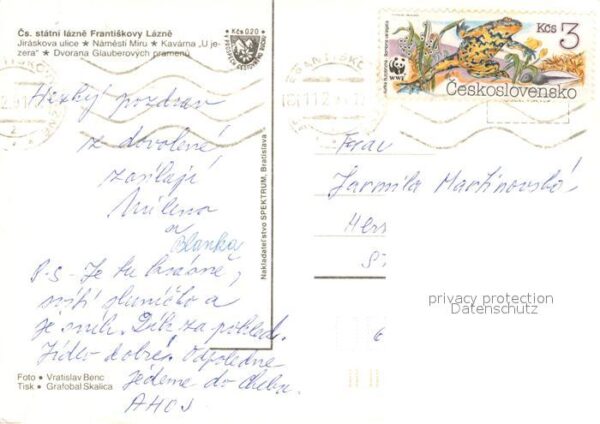 Čs. státní lázně Františkovy Lázně
Jiráskova ulice ★ Náměstí Míru ★ Kavárna „U je-
zera" ★ Dvorana Glauberových pramenů
Kčs 0,20
Hezký pozdrav
z dovolené
zasílají
Milena
a
Blanka
P.S. Je tu krásně,
svítí sluníčko a
je sníh. Dík za pohled.
Jídlo dobré. Odpoledne
jedeme do Chebu.
AHOJ
Foto ● Vratislav Benc
Tisk ● Grafobal Skalica
Nakladateľstvo SPEKTRUM, Bratislava
Kčs 3
WWF
Československo
Jarmila Martinovská
privacy protection
Datenschutz
6